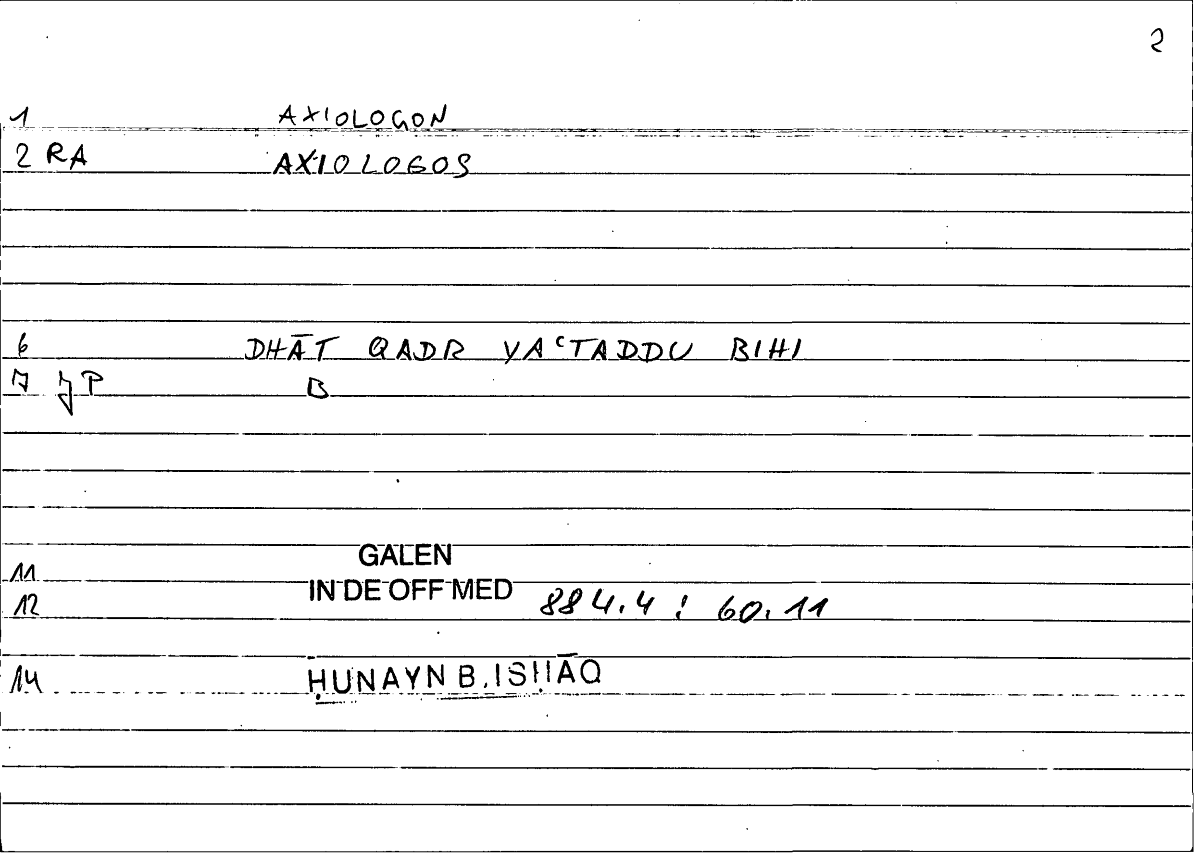 2
1 AXIOLOGON
2 RA AXIOLOGOS
6 DHĀT QADR YAᶜTADDU BIHI
7 JP B
11 GALEN
12 IN DE OFF MED 884.4 : 60.11
14 ḤUNAYN B. ISḤĀQ